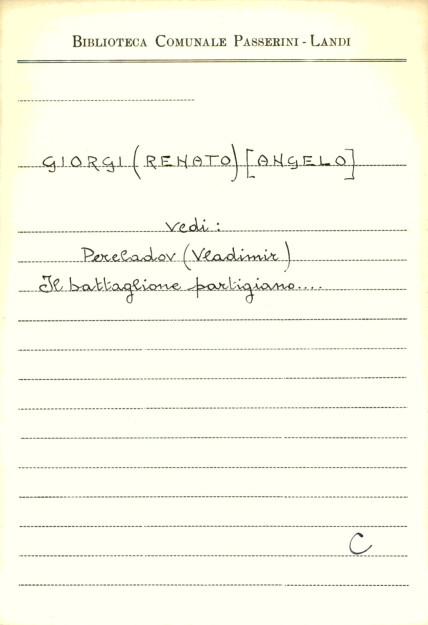 BIBLIOTECA COMUNALE PASSERINI - LANDI
GIORGI (RENATO) [ANGELO]
Vedi :
Pereladov (Vladimir)
Il battaglione partigiano....
C